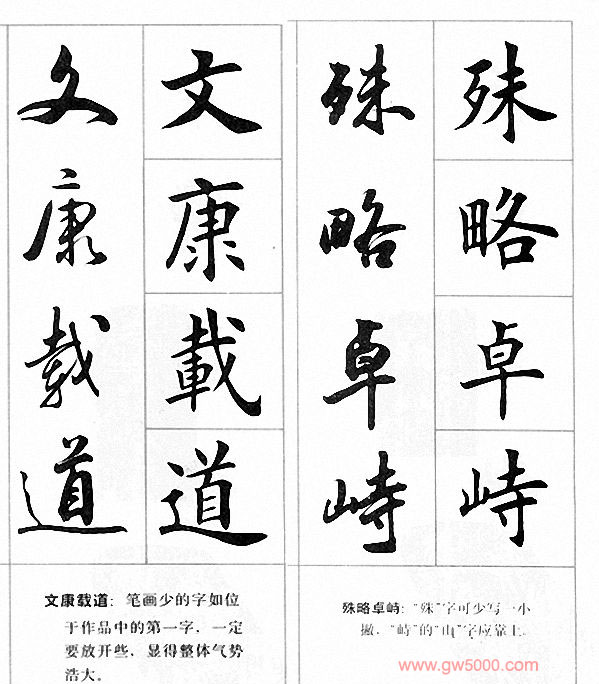 文康載道
文康載道
文康载道：笔画少的字如位
于作品中的第一字，一定
要放开些，显得整体气势
浩大。
殊略卓峙
殊略卓峙
殊略卓峙：“殊”字可少写一小
撇，“峙”的“山”字应靠上．
www.gw5000.com